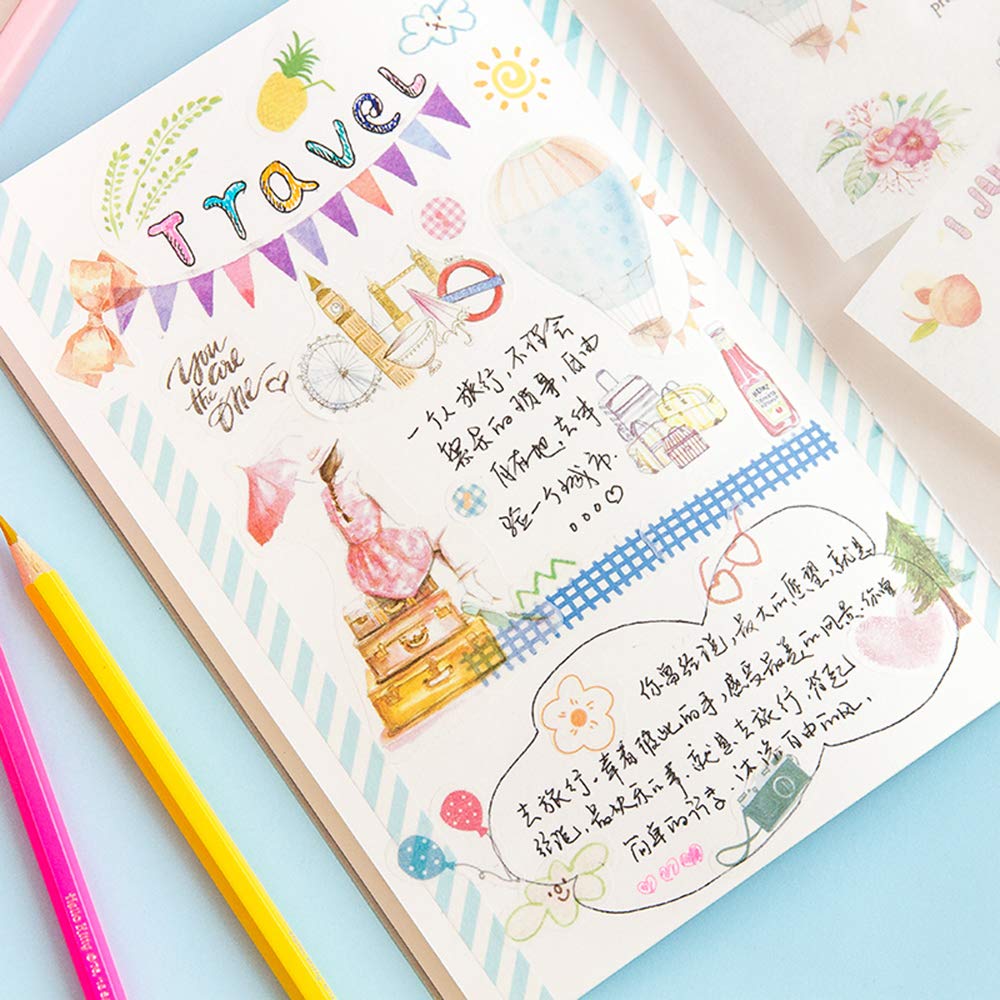 Travel
You
are
the
One
UNDERGROUND
一个人旅行,不理会
繁杂的琐事,自由
自在地,去体
验一个城市.
。。。♡
HEINZ
TOMATO
你曾经说,最大的愿望,就是
去旅行.牵着彼此的手,感受最美的风景.你曾
经说,最快乐的事,就是去旅行,背起
简单的行李,沐浴自由的风.
Hello Kitty